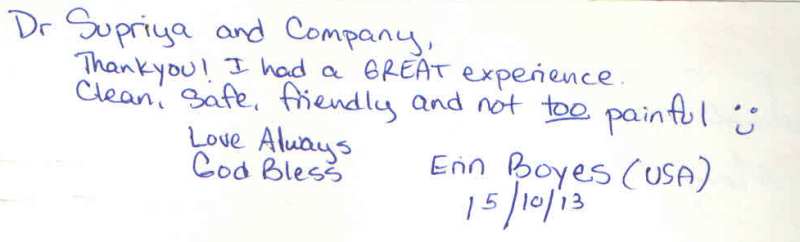 Dr Supriya and Company,
Thankyou! I had a GREAT experience.
Clean, safe, friendly and not too painful :)
Love Always
God Bless
Erin Boyes (USA)
15/10/13